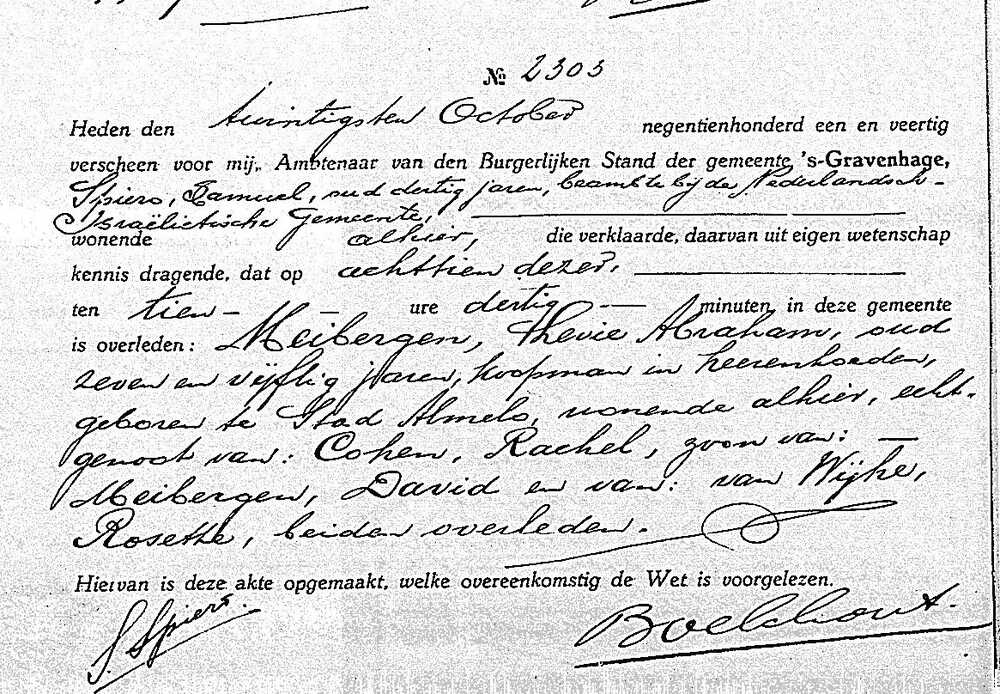 № 2303
Heden den twintigsten October negentienhonderd een en veertig
verscheen voor mij, Ambtenaar van den Burgerlijken Stand der gemeente 's-Gravenhage,
Spiero, Samuel, oud dertig jaren, beambte bij de Nederlandsch-
Israëlietische Gemeente,
wonende alhier, die verklaarde, daarvan uit eigen wetenschap
kennis dragende, dat op achttien dezer,
ten tien ure dertig minuten, in deze gemeente
is overleden: Meibergen, Thevie Abraham, oud
zeven en vijftig jaren, koopman in heerenhoeden,
geboren te Stad Almelo, wonende alhier, echt-
genoot van: Cohen, Rachel, zoon van: —
Meibergen, David en van: van Wijhe,
Rosette, beiden overleden.
Hiervan is deze akte opgemaakt, welke overeenkomstig de Wet is voorgelezen.
S. Spiero. Boekhout.